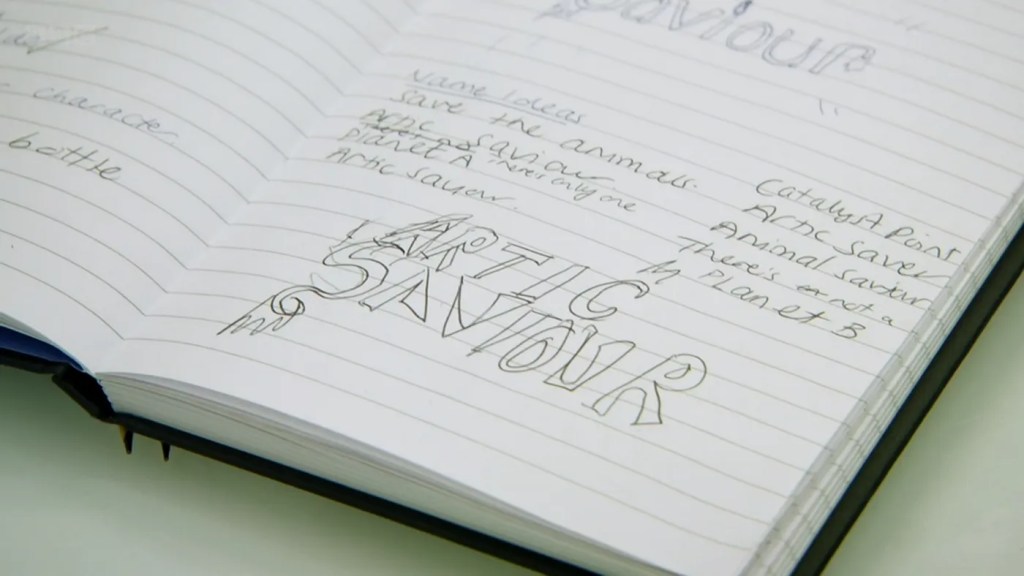 character
bottle
Saviour
Name Ideas
Save the animals.
Artic Saviour
Planet A there's only one
Artic saviour.
ARTIC
SAVIOUR
Catalyst Point
Artic Saver
Animal saviour
There's not a
Planet B